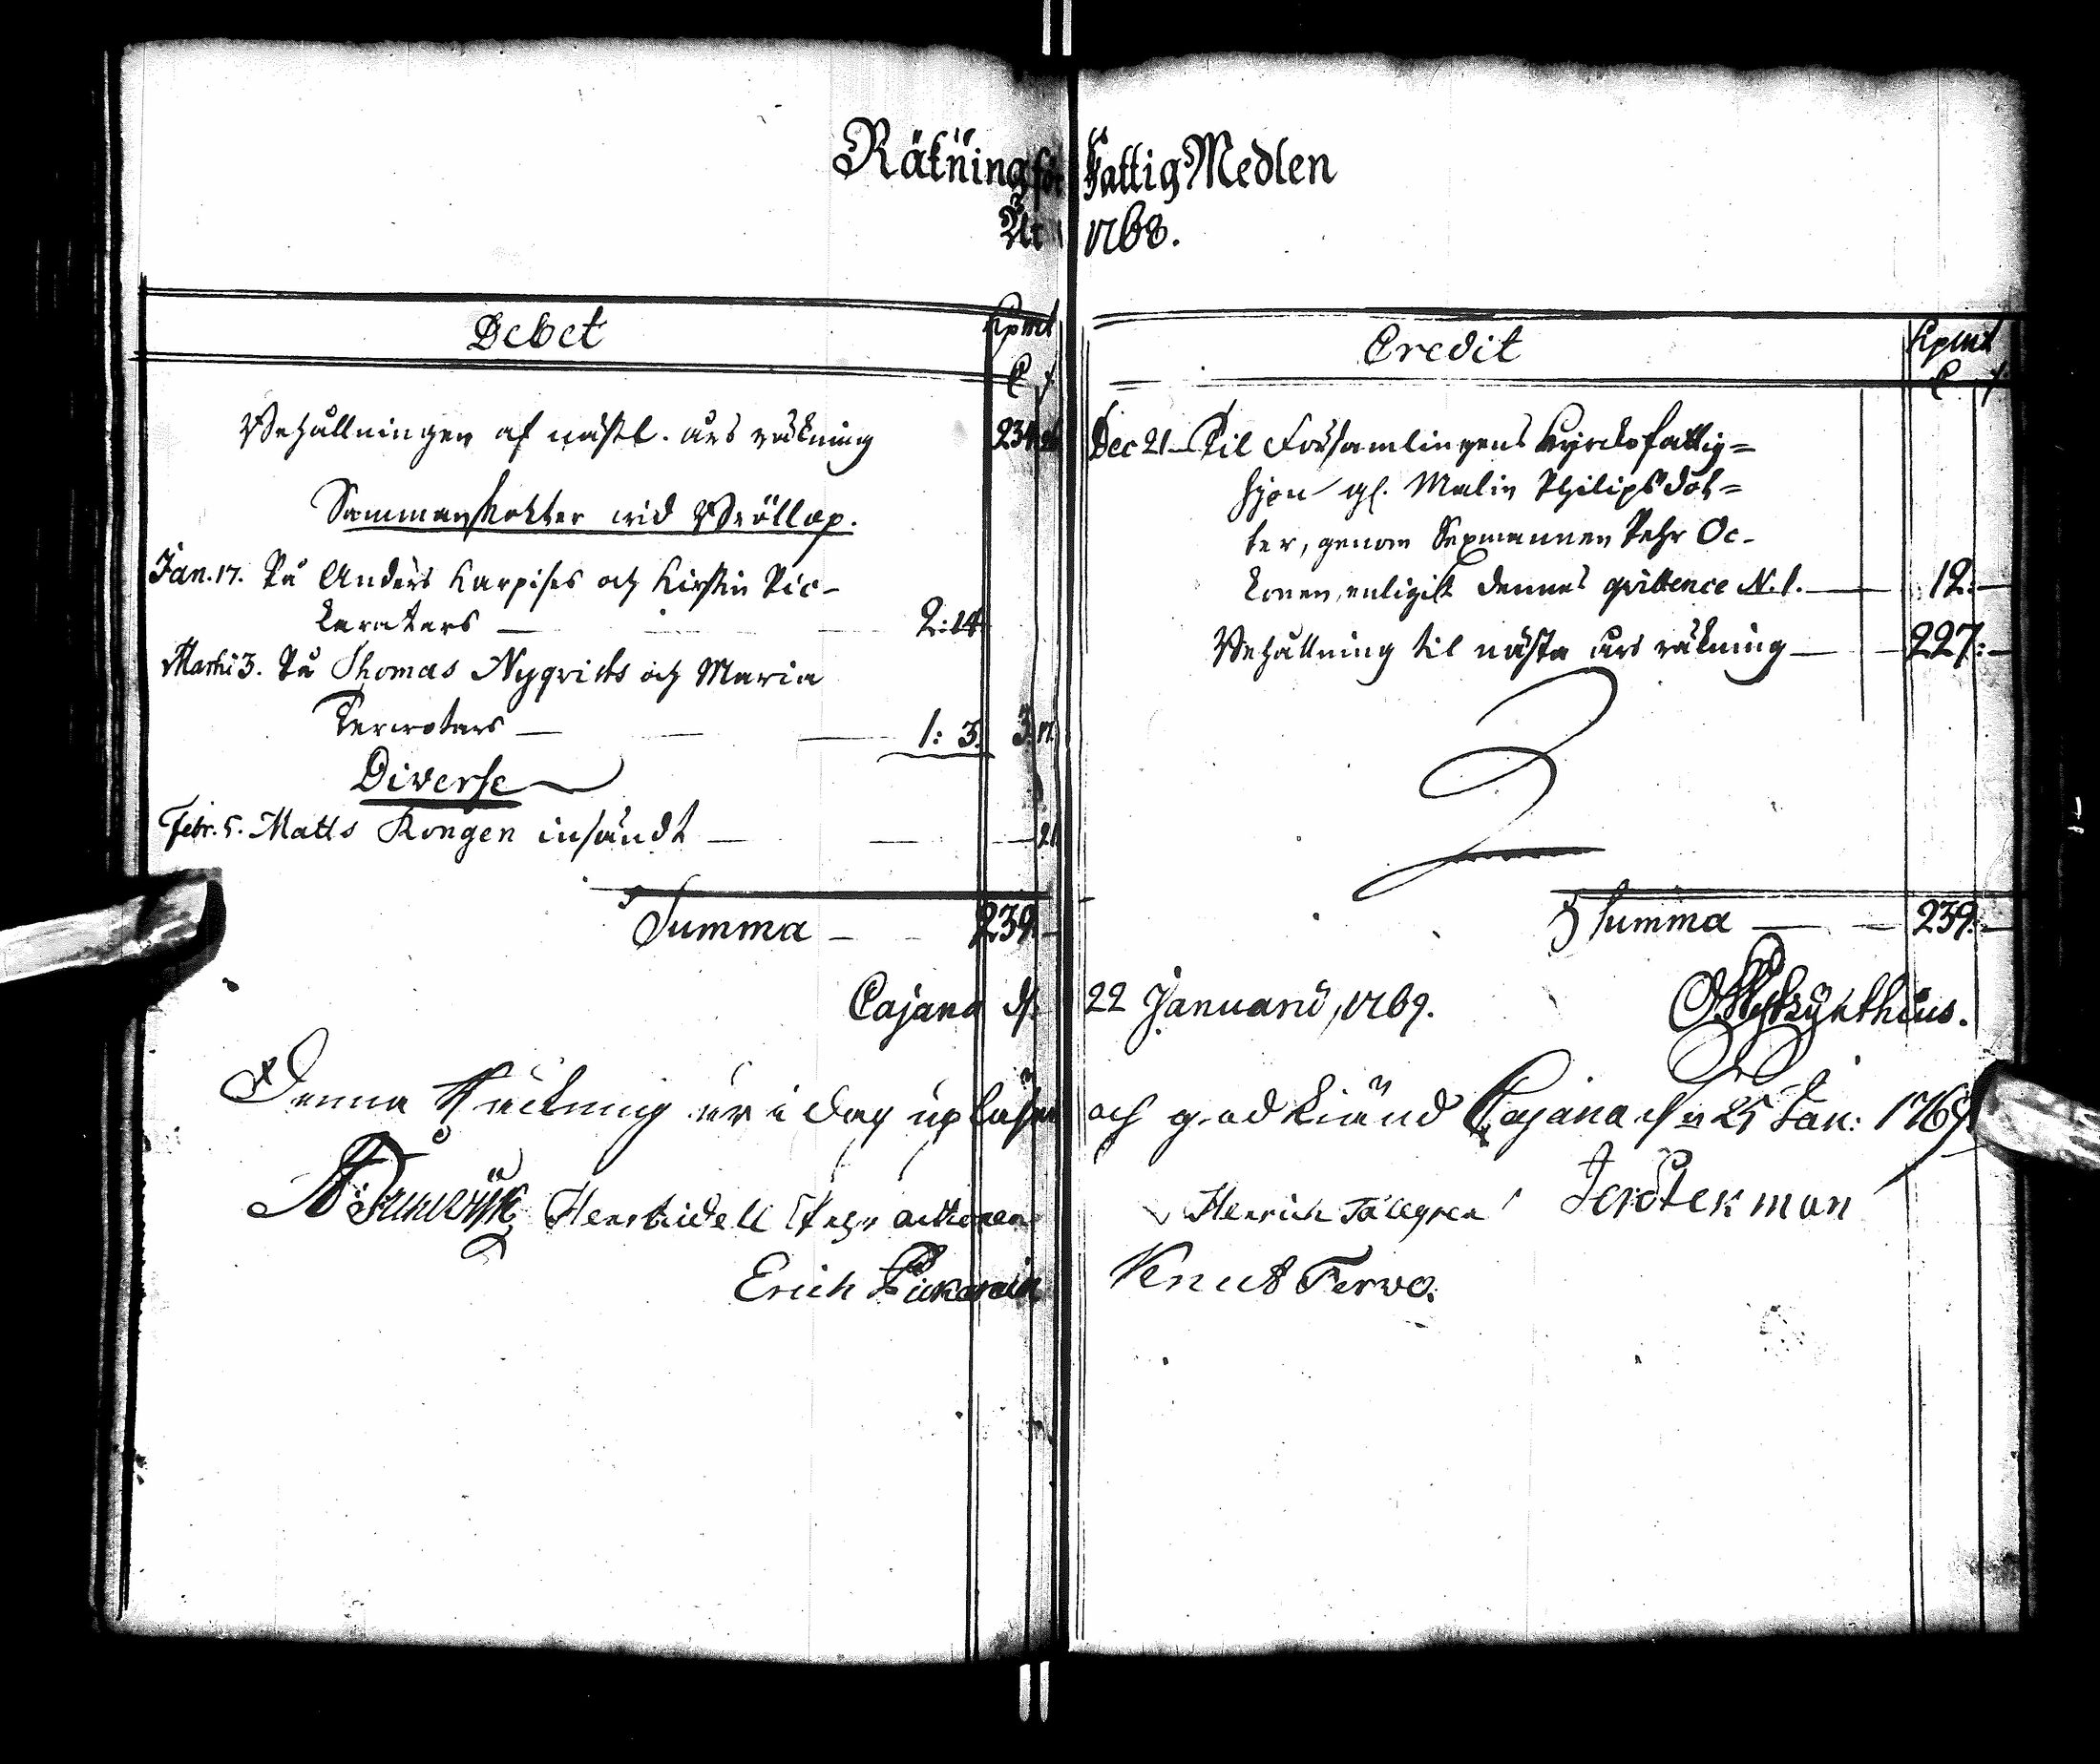 Räkning för Fattig Medlen
År 1768.
Debet
Kpmt
Behållningen af nästl. års räkning 234 26
Sammanskotter wid Bröllop.
Jan. 17. På Anders Karpises och Kirstin Pic-
keraters — 2: 14
Martii 3. På Thomas Nyqvists och Maria
Terwotars — 1: 3. 3. 17.
Diverse
Febr. 5. Matts Kongen insändt — 21
Summa — 239. —
Credit
Kpmt
Dec 21 — Til Församlingens Kyrckofattig=
hjon gl. Malin Philipsdot=
ter, genom Sexmannen Pehr Oc-
konen, enligit dennes qvittence N. 1. — 12. —
Behållning til nästa års räkning — 227: —
Summa — 239. —
Cajana d. 22 Januarii, 1769.
Denna Räckning är i dag upläsen och godkiänd Cajana d. 25 Jan: 1769.
Pehr Henrich Tällgren
Erich Knut Tervo.